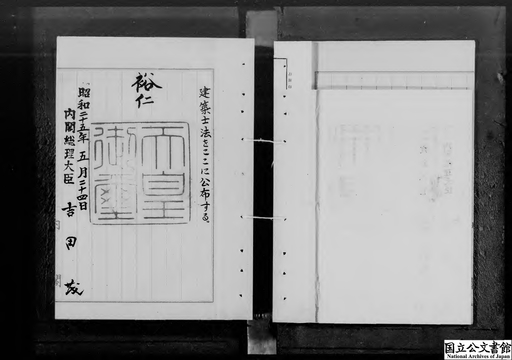 建築士法をここに公布する。
裕仁
天皇御璽
昭和二十五年五月二十四日
内閣総理大臣 吉田茂
国立公文書館
National Archives of Japan